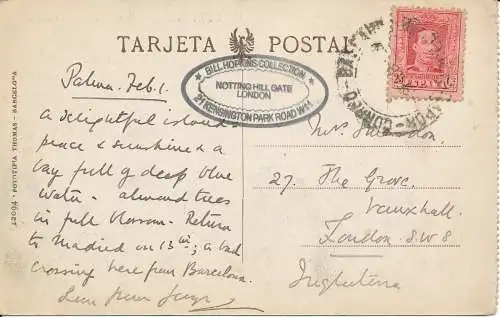 TARJETA POSTAL
★ BILL HOPKINS COLLECTION ★
NOTTING HILL GATE
LONDON
21 KENSINGTON PARK ROAD W11
Palma. Feb. 1.
a delightful island
peace & sunshine & a
bay full of deep blue
water - almond trees
in full blossom. Return
to Madrid on 13th; a bad
crossing here from Barcelona.
27. The Grove.
Vauxhall.
London. S.W. 8
Inglaterra
FOTOTIPIA THOMAS - BARCELONA